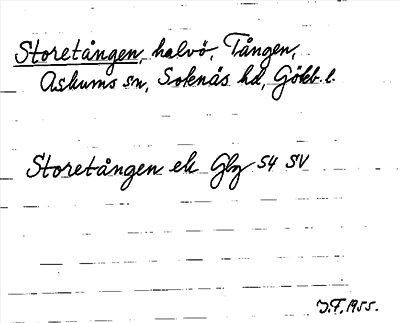 Storetången, halvö, Tången,
Askums sn, Soknäs hd, Götb. l.
Storetången ek Gbg 54 SV
J.F. 1955.